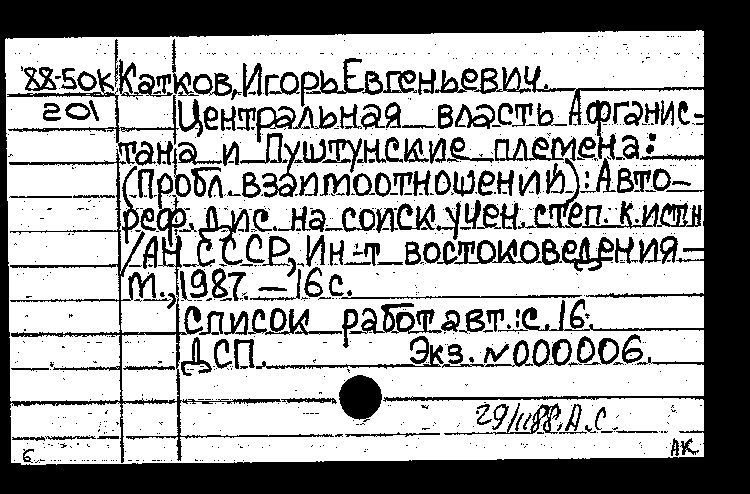 88-50к Катков, Игорь Евгеньевич.
201 Центральная власть Афганис-
тана и Пуштунские племена:
(Пробл. взаимоотношений): Авто-
реф. дис. на соиск. учен. степ. к.ист.н
/АН СССР, Ин-т востоковедения.—
М., 1987. — 16 с.
Список работ авт.: с. 16.
ДСП. Экз. №000006.
29/II 88. А.С
6 АК